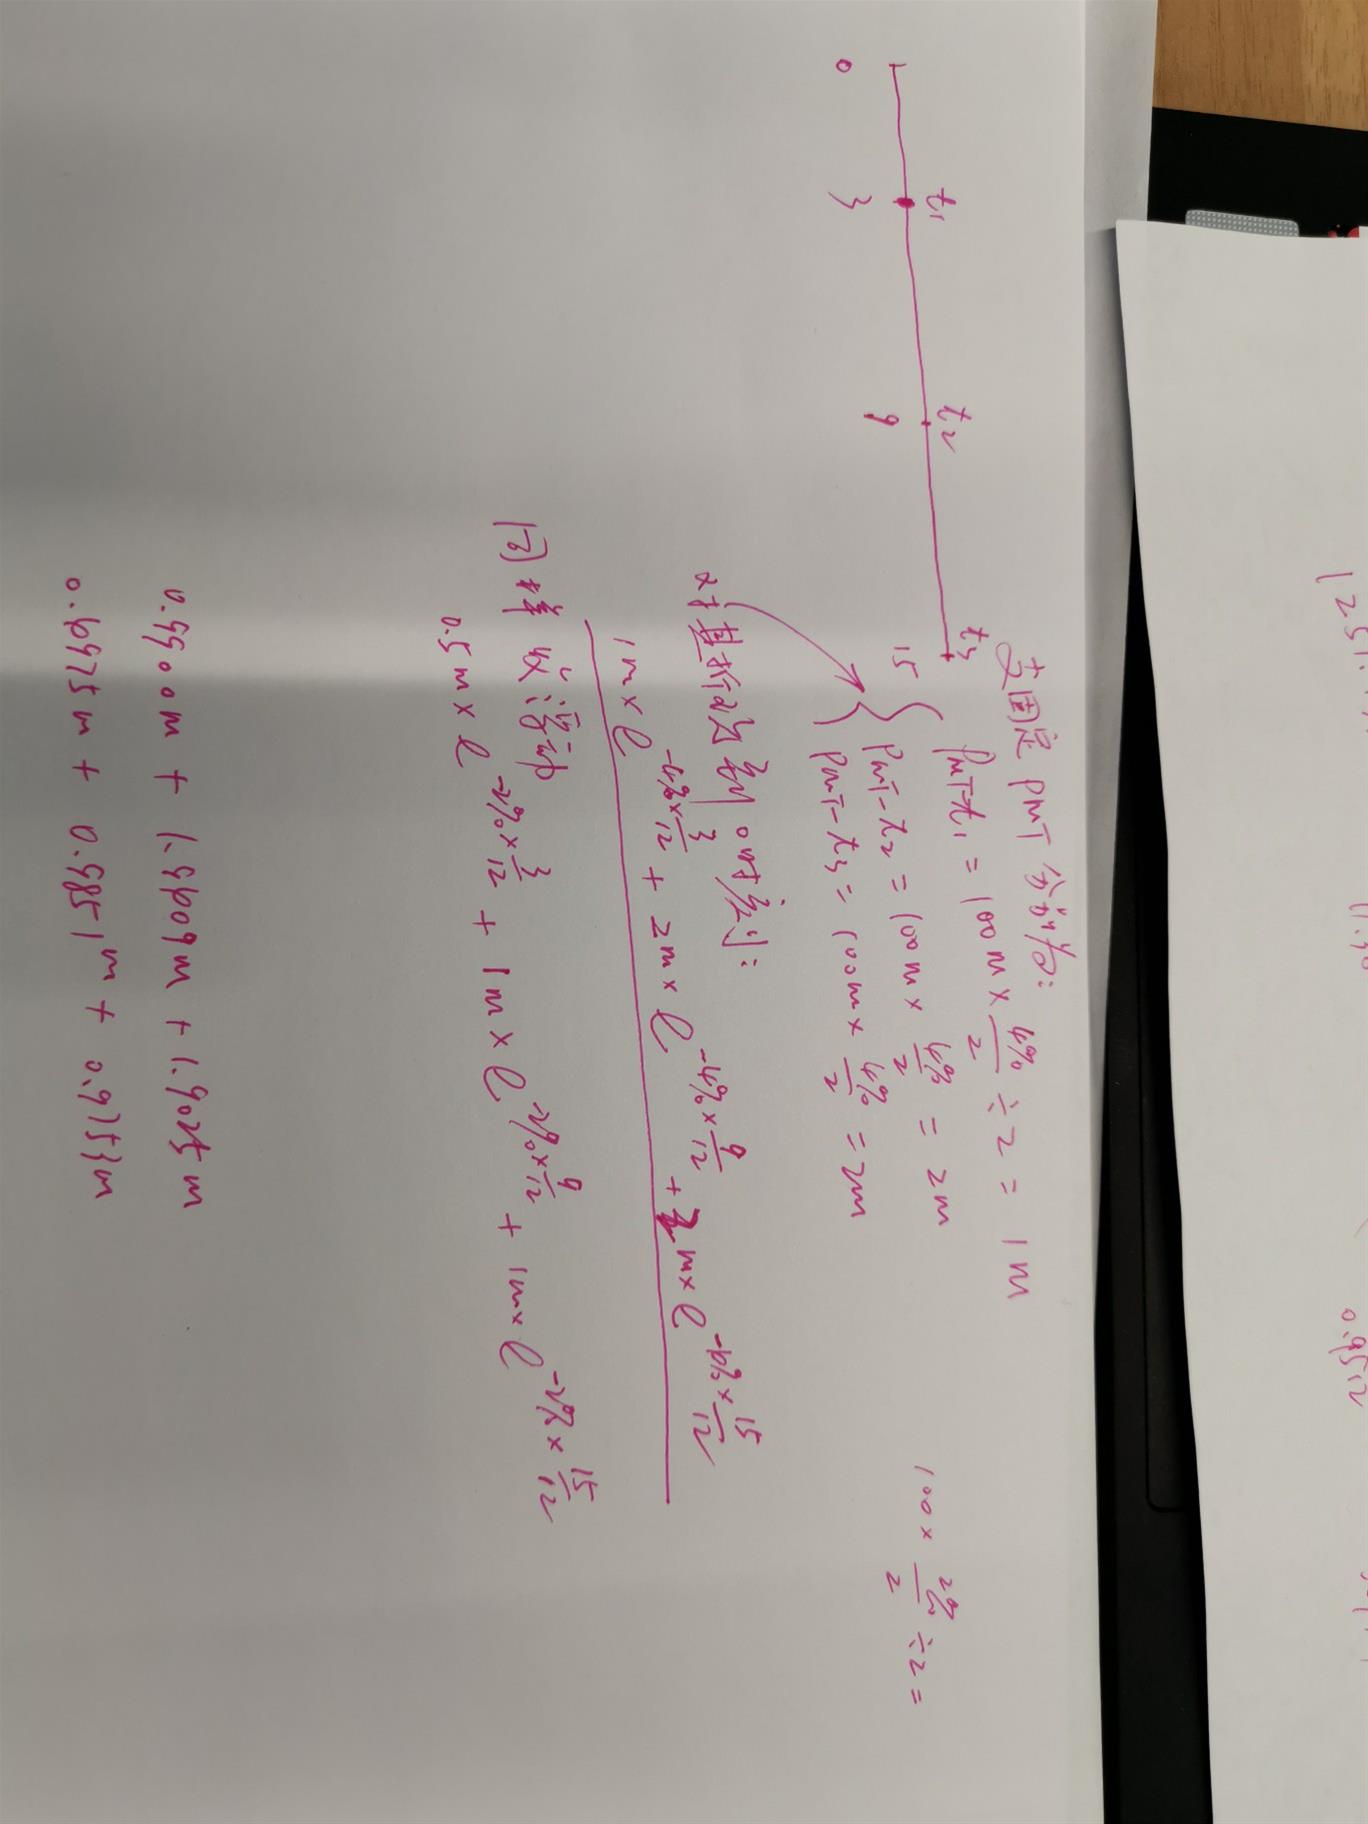 t₁ t₂ t₃
0 3 9 15
支固定 PMT 分别为:
PMT-t₁ = 100M × 4%/2 ÷ 2 = 1M
PMT-t₂ = 100M × 4%/2 = 2M
PMT-t₃ = 100M × 4%/2 = 2M
100 × 2%/2 ÷ 2 =
对其折现到 0时刻:
1M × e^(-4%×3/12) + 2M × e^(-4%×9/12) + 2M × e^(-4%×15/12)
同样 收浮动
0.5M × e^(-2%×3/12) + 1M × e^(-2%×9/12) + 1M × e^(-2%×15/12)
0.9900M + 1.9409M + 1.9025M
0.4975M + 0.9851M + 0.9753M
1251.
0.9512